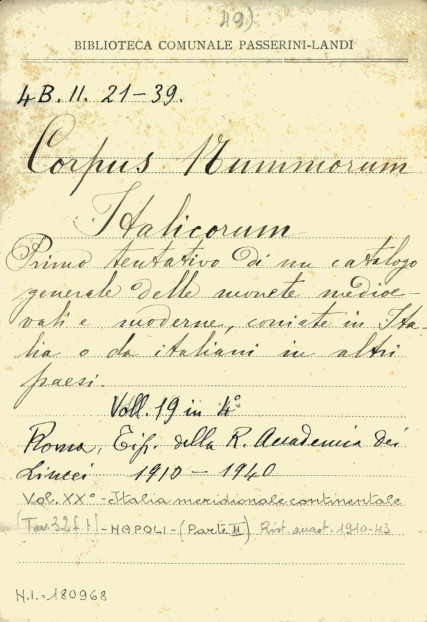 49)
BIBLIOTECA COMUNALE PASSERINI-LANDI
4B. II. 21-39.
Corpus Nummorum
Italicorum
Primo tentativo di un catalogo
generale delle monete medioe-
vali e moderne, coniate in Ita-
lia o da italiani in altri
paesi.
Voll. 19 in 4°
Roma, Tip. della R. Accademia dei
Lincei 1910 - 1940
Vol. XX° - Italia meridionale continentale
- NAPOLI - (Parte II) Rist. anast. 1910-43
N.I. = 180968